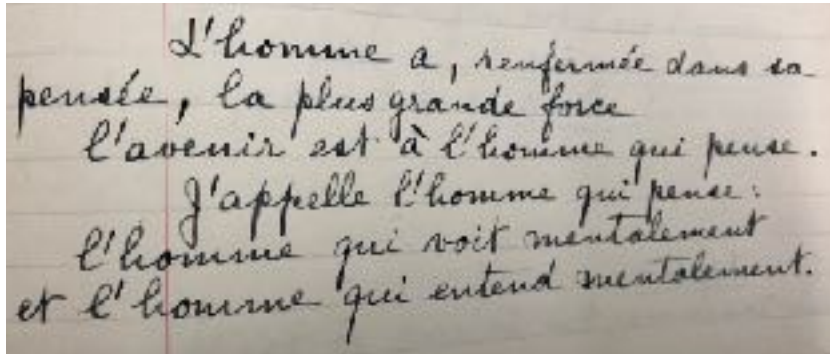 L'homme a, renfermée dans sa
pensée, la plus grande force
l'avenir est à l'homme qui pense.
J'appelle l'homme qui pense :
l'homme qui voit mentalement
et l'homme qui entend mentalement.